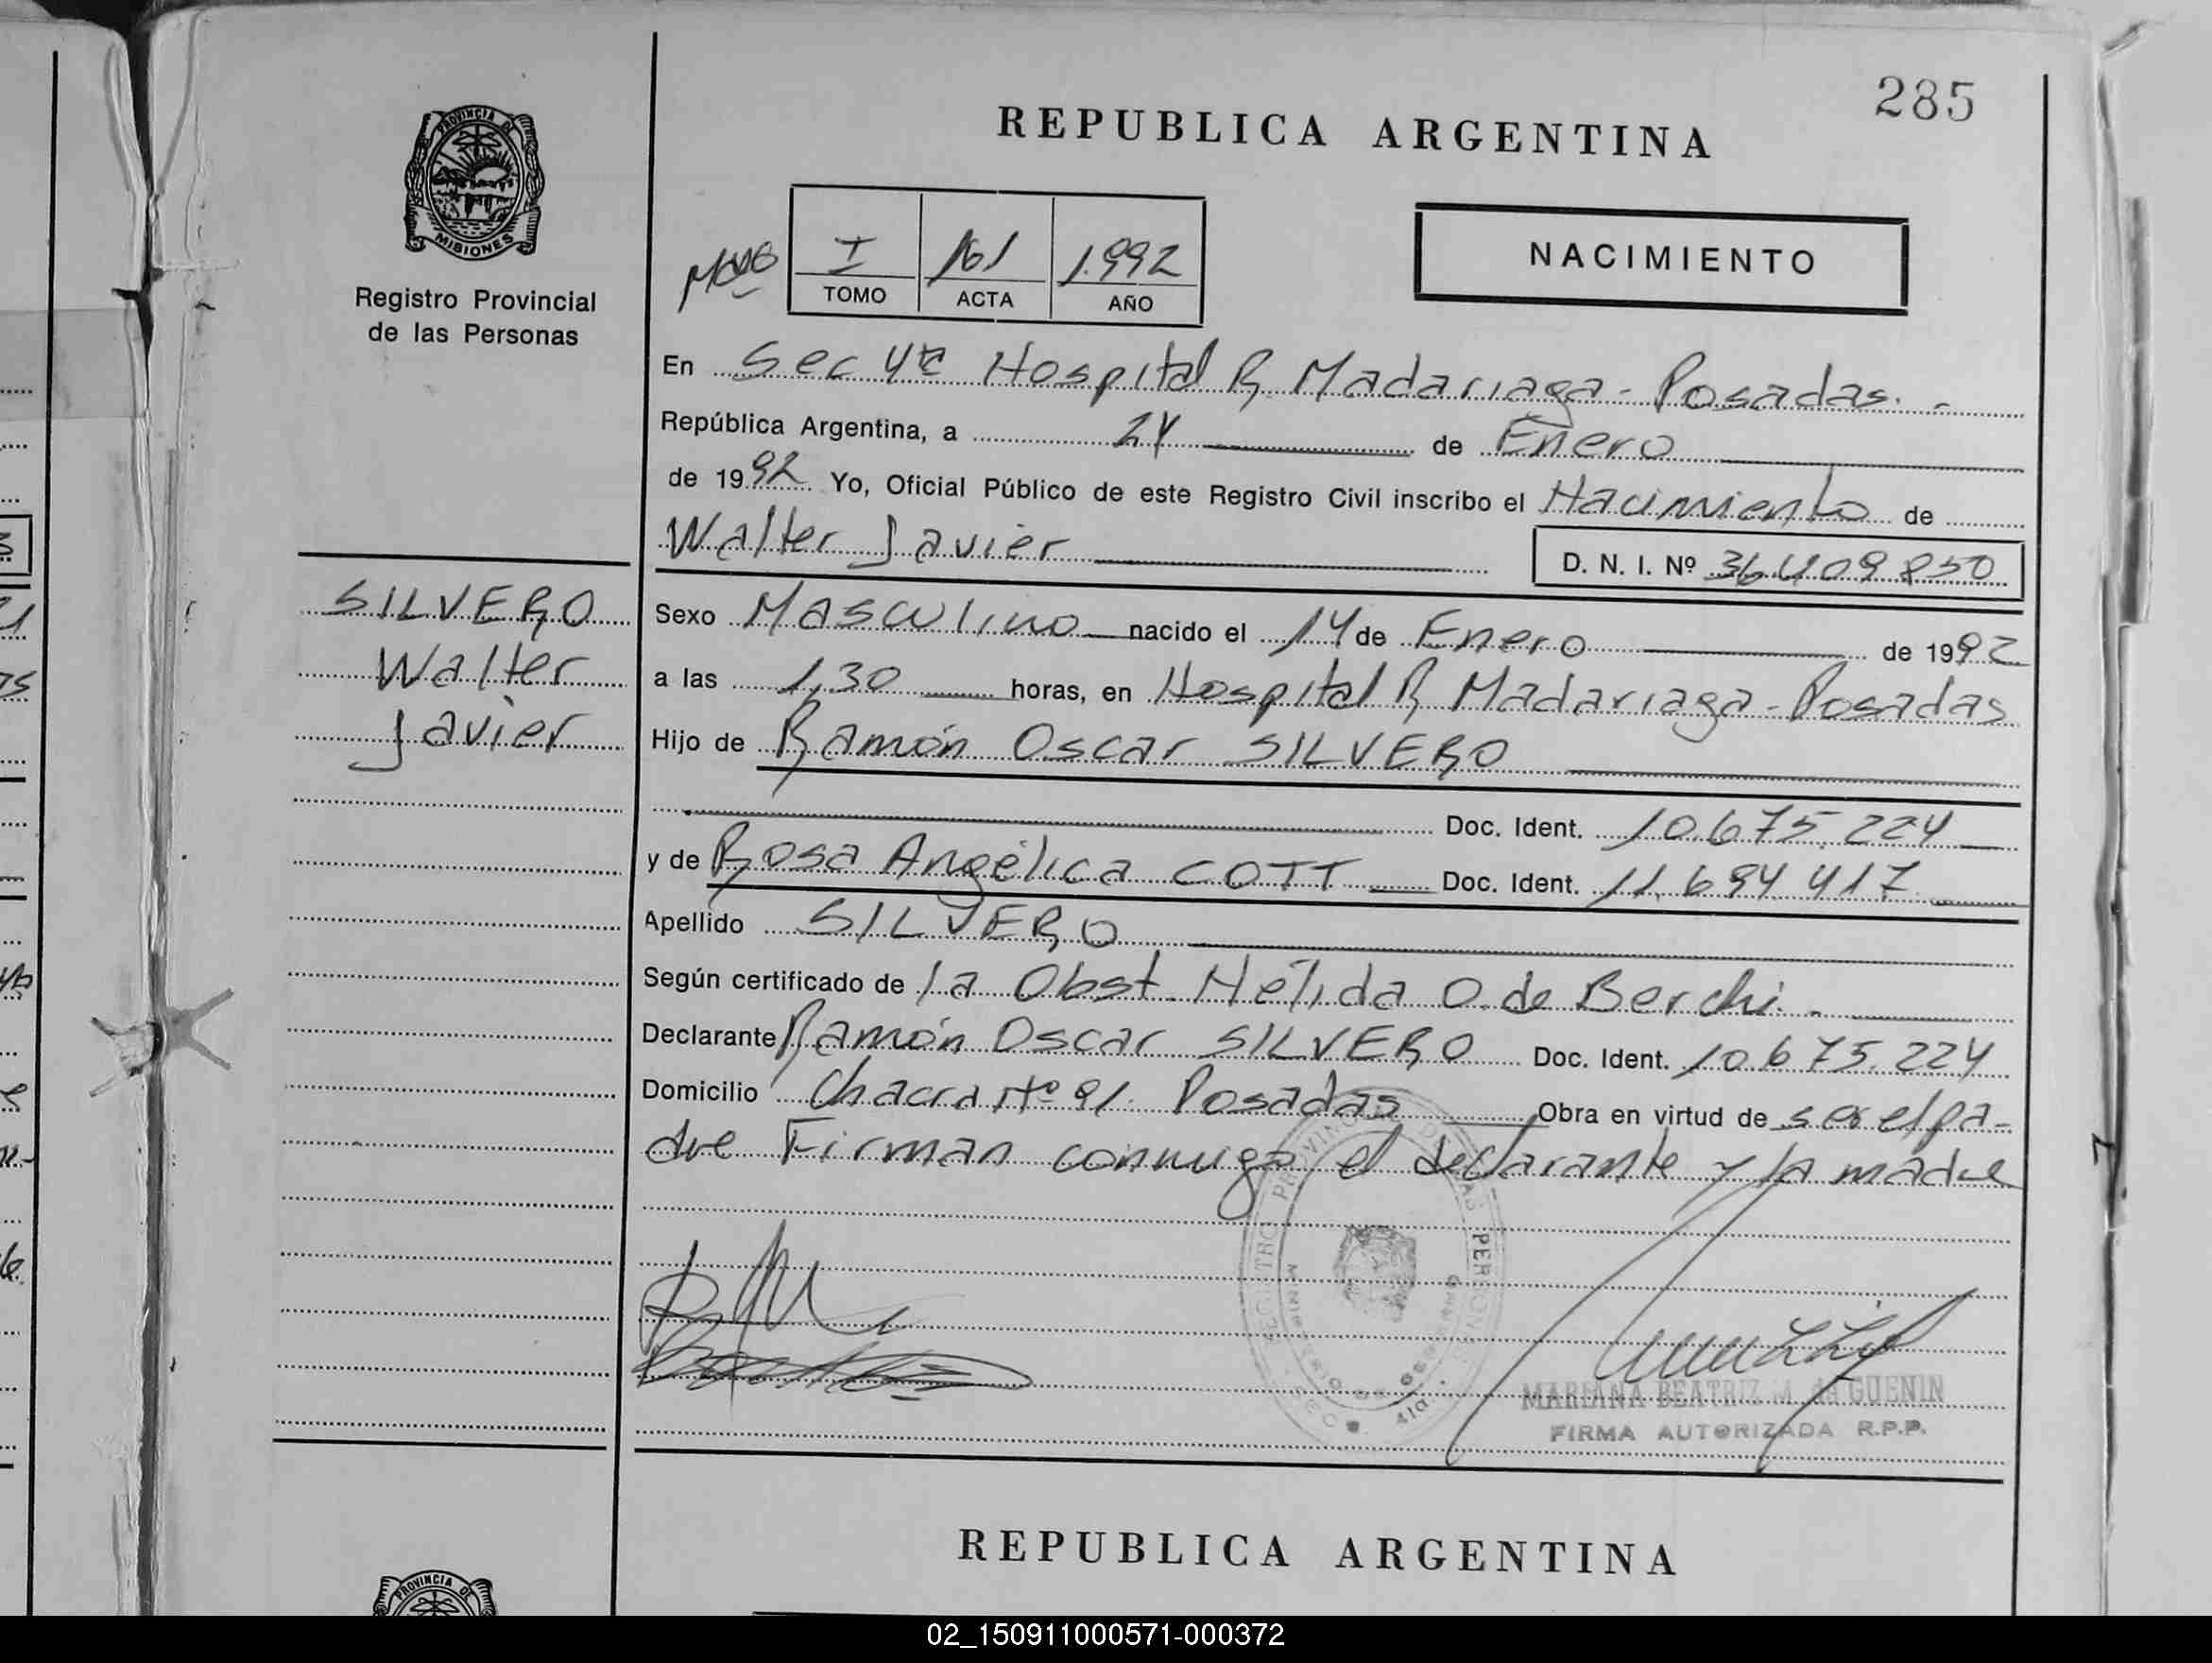 285
REPUBLICA ARGENTINA
PROVINCIA DE
MISIONES
Registro Provincial
de las Personas
I 161 1.992
TOMO ACTA AÑO
NACIMIENTO
En Sec 4ta Hospital R. Madariaga - Posadas. -
República Argentina, a 24 de Enero
de 1992 Yo, Oficial Público de este Registro Civil inscribo el Nacimiento de
Walter Javier D. N. I. Nº 36.409.850
SILVERO
Walter
Javier
Sexo Masculino nacido el 14 de Enero de 1992
a las 1,30 horas, en Hospital R. Madariaga - Posadas
Hijo de Ramón Oscar SILVERO
Doc. Ident. 10.675.224
y de Rosa Angélica COTT Doc. Ident. 11.694.417
Apellido SILVERO
Según certificado de la Obst. Nélida O. de Berchi. -
Declarante Ramón Oscar SILVERO Doc. Ident. 10.675.224
Domicilio Chacra Nº 91. Posadas Obra en virtud de ser el pa-
dre Firman conmigo el declarante y la madre
MARIANA BEATRIZ M. de GUENIN
FIRMA AUTORIZADA R.P.P.
REPUBLICA ARGENTINA
PROVINCIA DE
02_150911000571-000372